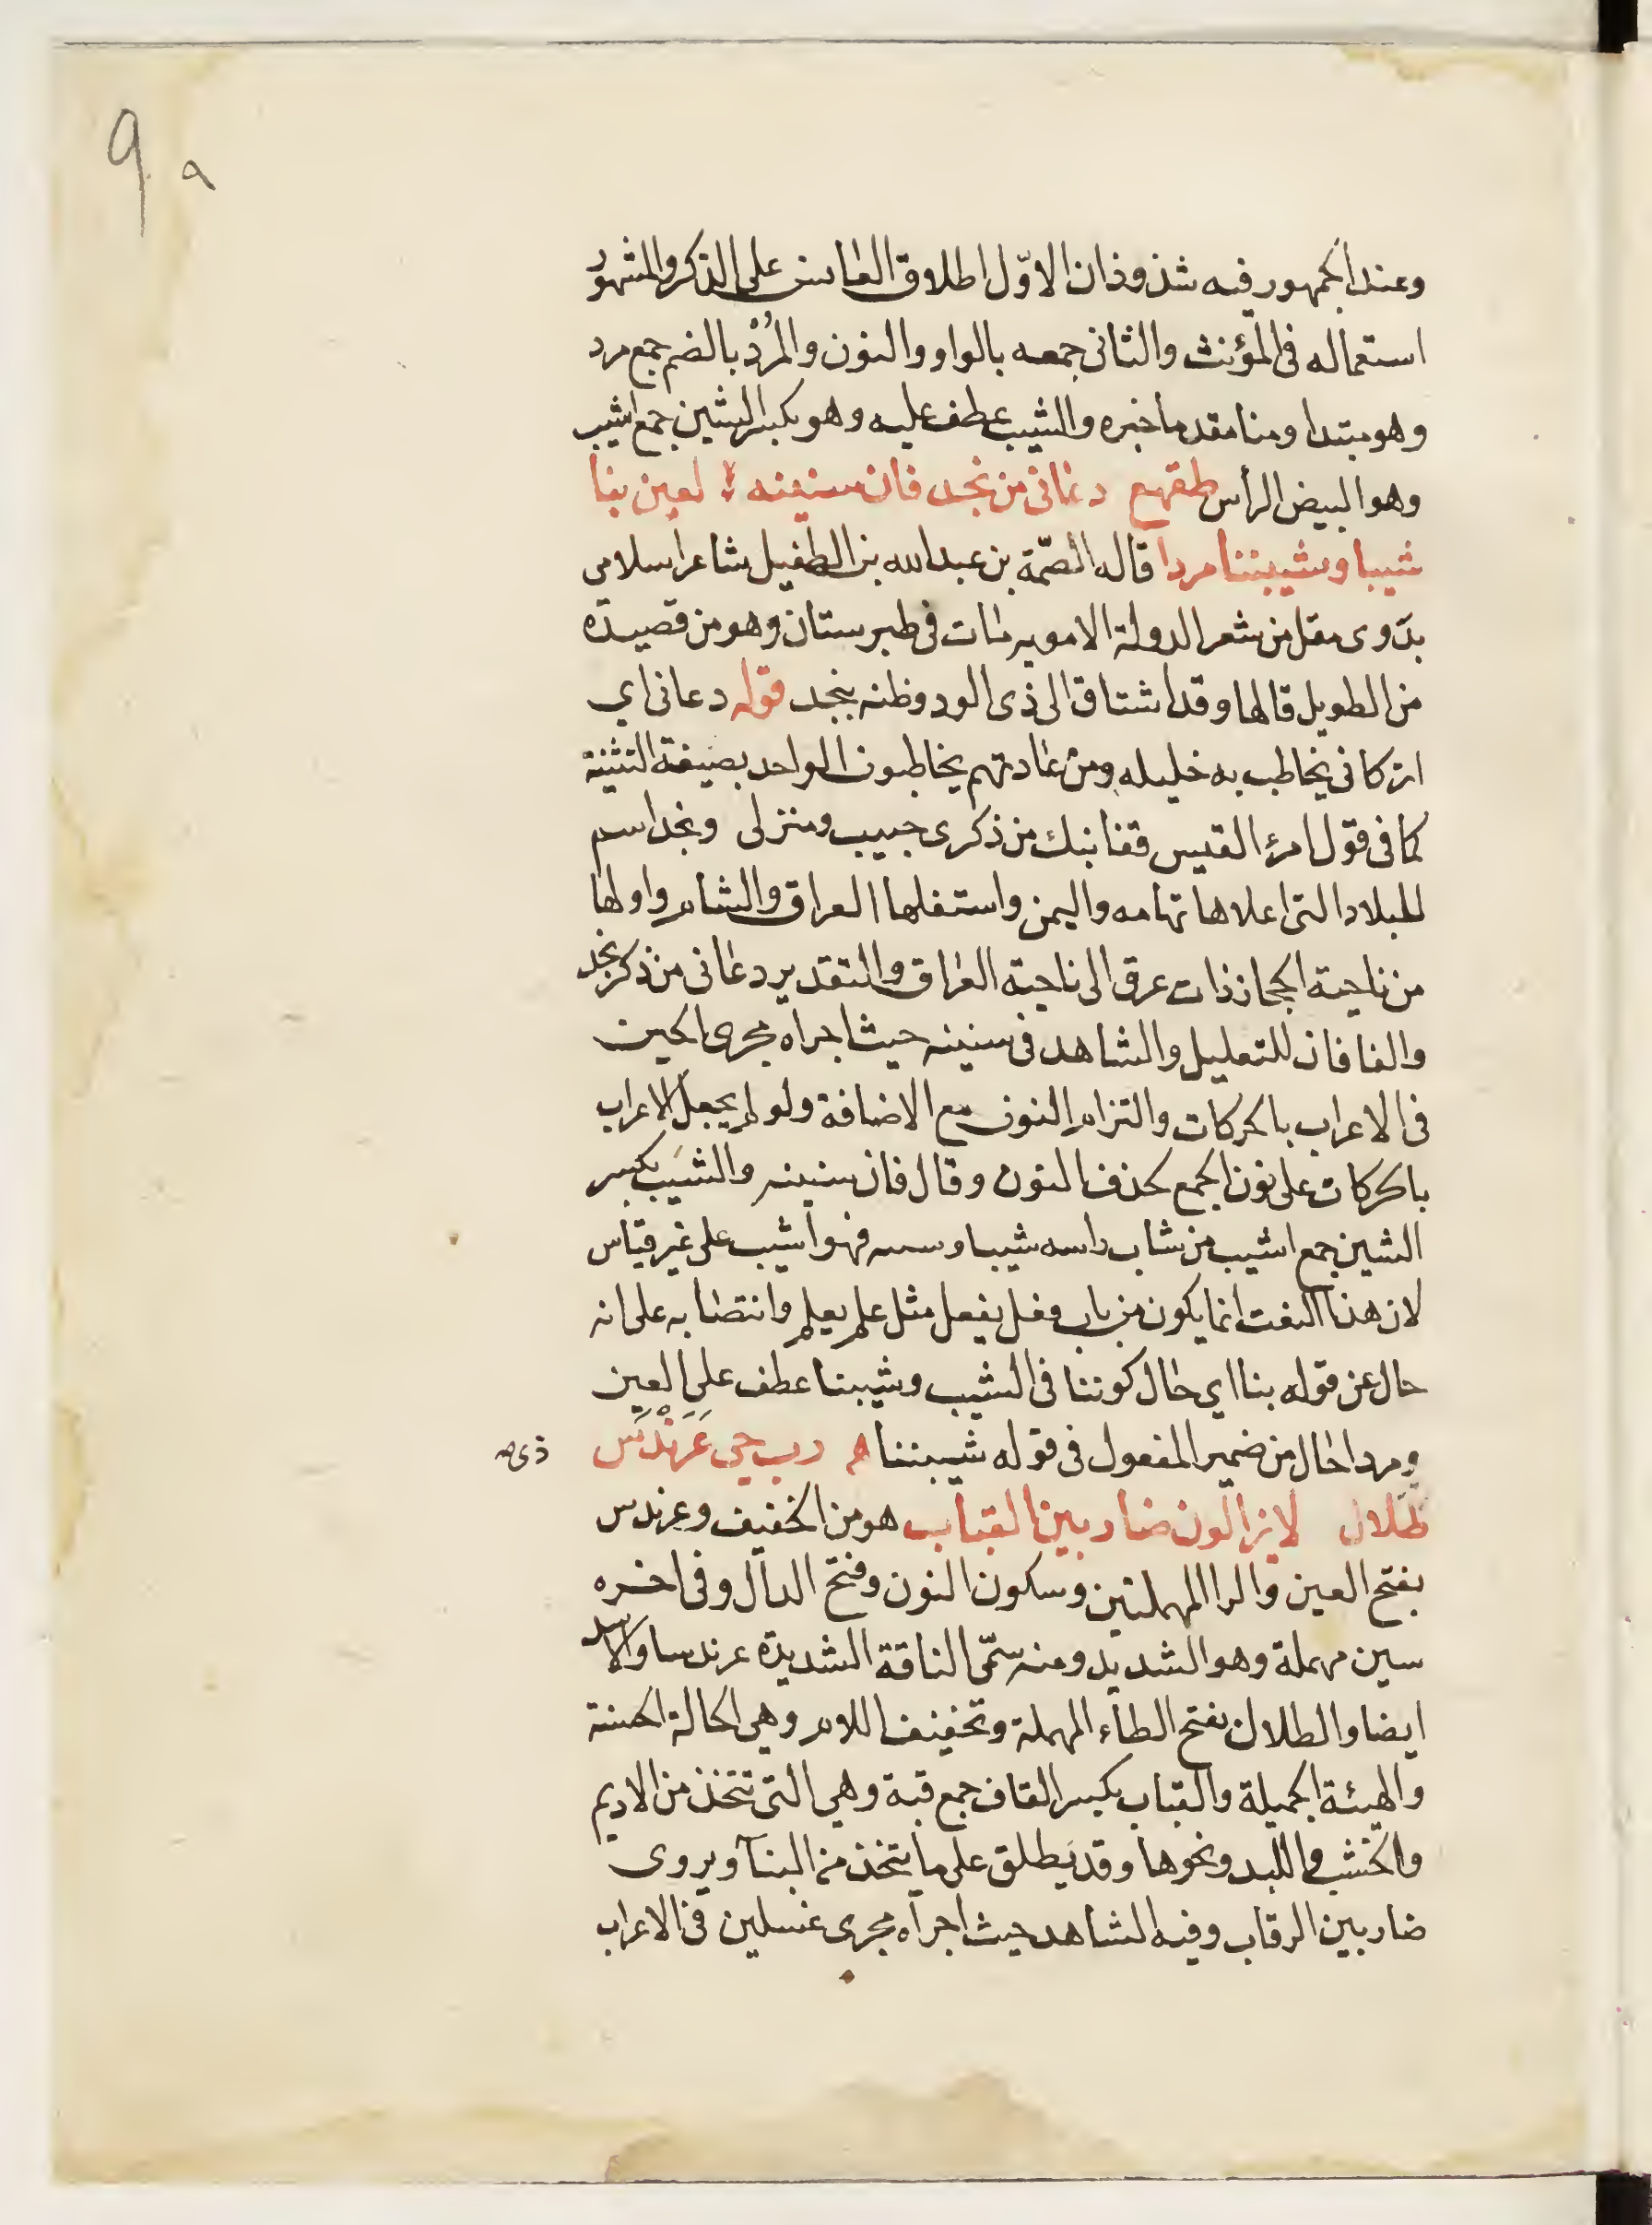 9 ٩
وعند الجمهور فيه شذوذان الاوّل اطلاق العانس على الذكر والمشهور
استعماله فى المؤنث والثانى جمعه بالواو والنون والمُرْد بالضم جمع مرد
وهو مبتدا ومنا مقدما خبره والشيب عطف عليه وهو بكسر الشين جمع اشيب
وهو البيض الرأس طقهع دعانى من نجد فان سنينه لعبن بنا
شيبا وشيبننا مردا قاله الصّمّة بن عبدالله بن الطفيل شاعر اسلامى
بدوى مقل من شعر الدولة الاموية مات فى طبرستان وهو من قصيدة
من الطويل قالها وقد اشتاق الى ذى الود وظنه بنجد قوله دعانى اي
اتركانى يخاطب به خليله ومن عادتهم يخاطبون الواحد بصيغة التثنية
كما فى قول امرئ القيس قفا نبك من ذكرى حبيب ومنزلى ونجد اسم
للبلاد التى اعلاها تهامه واليمن واسفلها العراق والشام واولها
من ناحية الحجاز ذات عرق الى ناحية العراق والتقدير دعانى من ذكر نجد
والفا فان للتعليل والشاهد فى سنينه حيث اجراه مجرى الحين
فى الاعراب بالحركات والتزام النون مع الاضافة ولو لم يجعل الاعراب
بالحركات على نون الجمع لحذف النون وقال فان سنينه والشيَب بكسر
الشين جمع اشيب من شاب راسه شيبا فهو اشيب على غير قياس
لان هذا النعت انما يكون من باب فعل يفعل مثل علم يعلم وانتصابه على انه
حال عن قوله بنا اي حال كوننا فى الشيب وشيبنا عطف على لعبن
ومردا حال من ضمير المفعول فى قوله شيبننا ه رب حي عَرَنْدَس ذى صح
طَلال لا يزالون ضاربين القباب هو من الخفيف وعرندس
بفتح العين والرا المهملتين وسكون النون وفتح الدال وفى اخره
سين مهملة وهو الشديد ومنه سمّى الناقة الشديدة عرندسا والاسد
ايضا والطلال بفتح الطاء المهملة وتخفيف اللام وهى الحالة الحسنة
والهيئة الجميلة والقباب بكسر القاف جمع قبة وهي التى تتخذ من الاديم
والخشب واللبد ونحوها وقد يطلق على ما يتخذ من البنآ ويروى
ضاربين الرقاب وفيه الشاهد حيث اجراه مجرى غسلين فى الاعراب